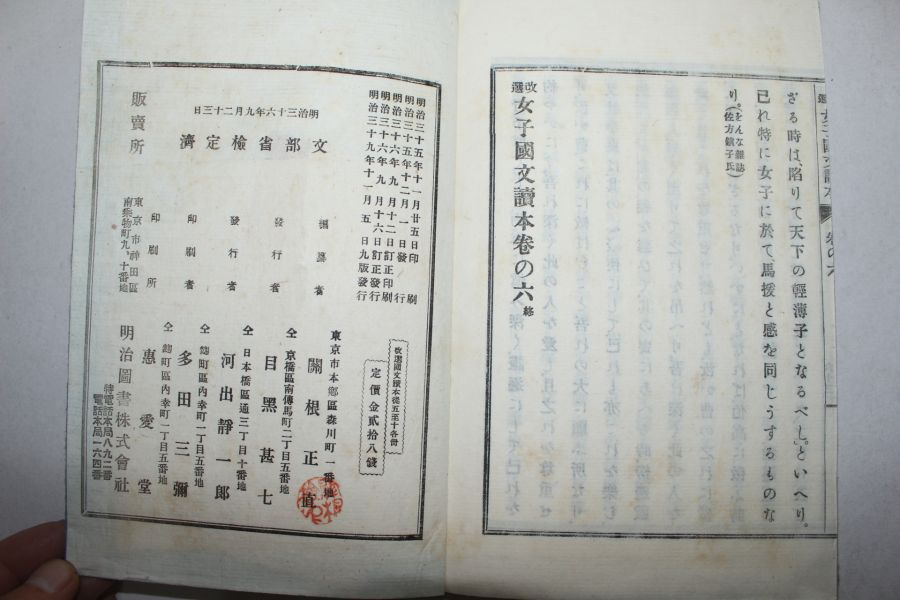 ざる時は、陷りて天下の輕薄子となるべし。」といへり。
己れ特に女子に於て、馬援と感を同じうするものな
り。(をんな雜誌 佐方鎭子氏)
改選 女子國文讀本卷の六 終
明治三十五年十一月廿五日印刷
明治三十五年十二月一日發行
明治三十六年九月十二日訂正印刷
明治三十六年九月十六日訂正發行
明治三十九年十一月五日九版發行
明治三十六年九月二十三日
文部省檢定濟
改選國文讀本從五至十各冊
定價金貳拾八錢
東京市本鄕區森川町一番地
編纂者 關根正直
仝 京橋區南傳馬町二丁目五番地
發行者 目黑甚七
仝 日本橋區通三丁目十番地
發行者 河出靜一郎
仝 麴町區內幸町一丁目五番地
印刷者 多田三彌
仝 麴町區內幸町一丁目五番地
印刷所 惠愛堂
東京市神田區南乘物町九、十番地
販賣所 明治圖書株式會社
特電話本局八九二番
電話本局一六四番